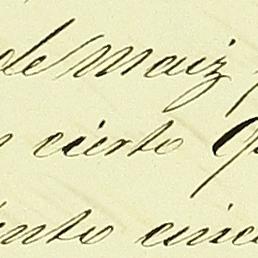 de Maiz
cierto
ento cinc